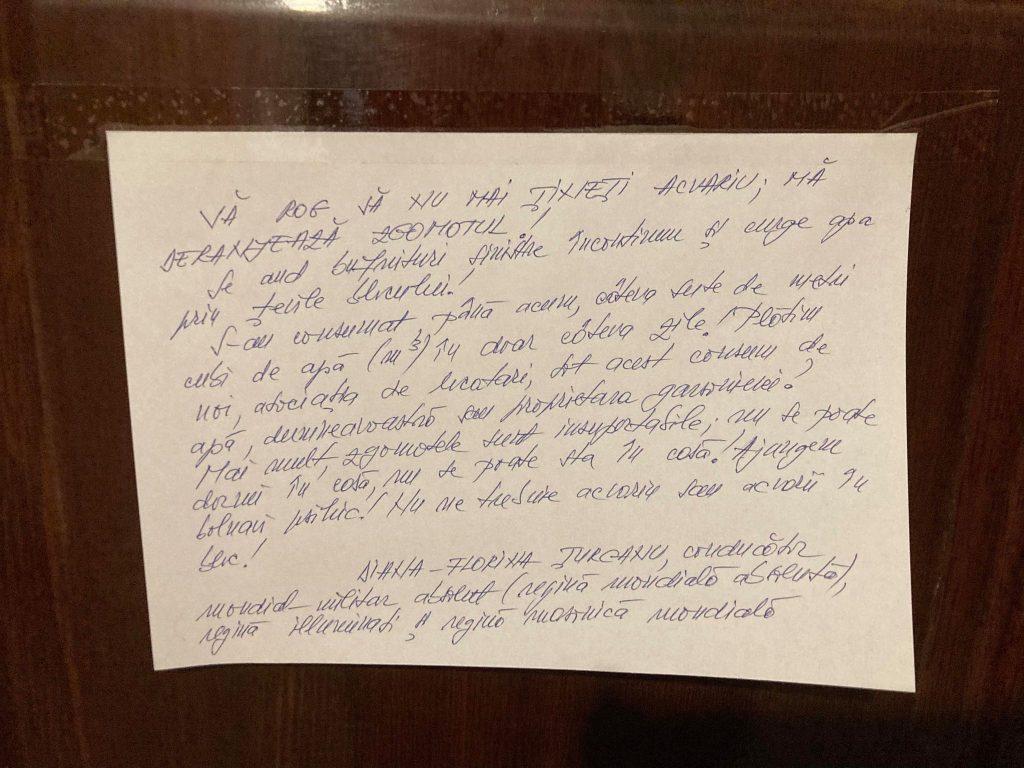 VĂ ROG SĂ NU MAI ŢINEŢI ACVARIU; MĂ
DERANJEAZĂ ZGOMOTUL!
Se aud bufnituri sinistre încontinuu şi curge apa
prin ţevile blocului!
S-au consumat până acum, câteva sute de metri
cubi de apă (m³) în doar câteva zile! Plătim
noi, asociaţia de locatari, tot acest consum de
apă, dumneavoastră sau proprietara garsonierei?
Mai mult, zgomotele sunt insuportabile; nu se poate
dormi în casă, nu se poate sta în casă! Ajungem
bolnavi psihic! Nu ne trebuie acvariu sau acvarii în
bloc!
DIANA-FLORINA ŢURCANU, conducător
mondial-militar absolut (regină mondială absolută),
regină Illuminati şi regină masonică mondială